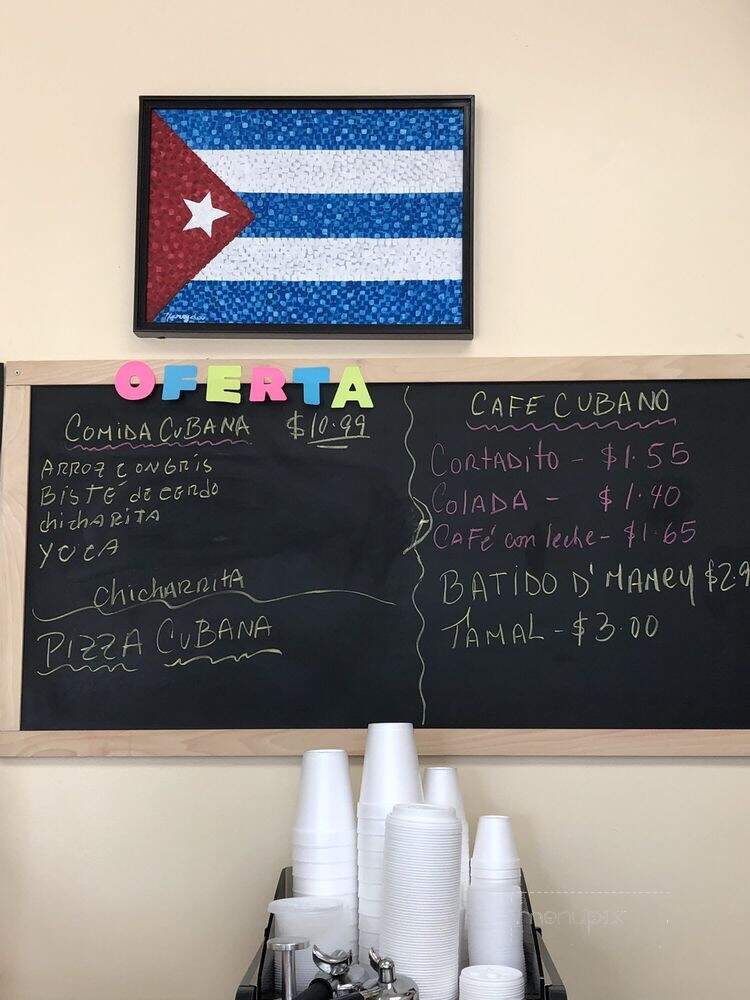 OFERTA
COMIDA CUBANA $10.99
ARROZ CONGRIS
BISTÉ de cerdo
chicharita
YUCA
chicharrita
PIZZA CUBANA
CAFE CUBANO
CORTADITO - $1.55
COLADA - $1.40
CAFÉ con leche - $1.65
BATIDO D' MAMEY $2.9
TAMAL - $3.00
menupix